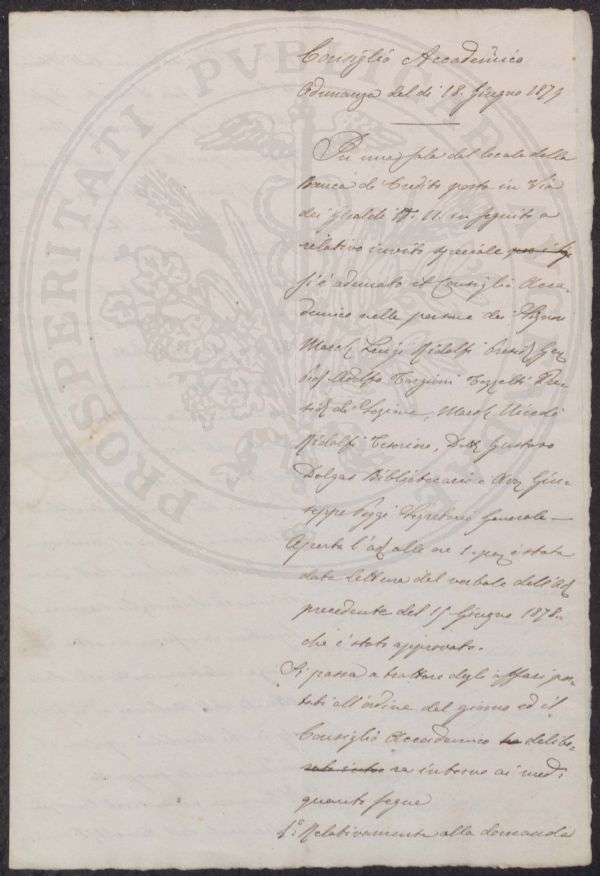 Consiglio Accademico
Adunanza del dì 18. Giugno 1879
In una sala del locale della
Banca di Credito posta in Via
dei Ginaldi N. 11. in seguito a
relativo invito speciale
si è adunato il Consiglio Acca-
demico nelle persone dei Signori
March. Luigi Ridolfi Presid. Gen.
Prof. Adolfo Targioni Tozzetti Pre-
sid. di Sezione, March. Niccolò
Ridolfi Tesoriere, Dott. Gustavo
Dalgas Bibliotecario e Avv. Giu-
seppe Pozzi Segretario Generale —
Aperta l'ad. alle ore 1. pom. è stata
data lettura del verbale dell'ad.
precedente del 15 Giugno 1878.
che è stato approvato.
Si passa a trattare degli affari por-
tati all'ordine del giorno ed il
Consiglio Accademico ha delibe-
rato intor ra intorno ai med.
quanto segue
1.° Relativamente alla domanda
PROSPERITATI PVBLICAE AVGENDAE